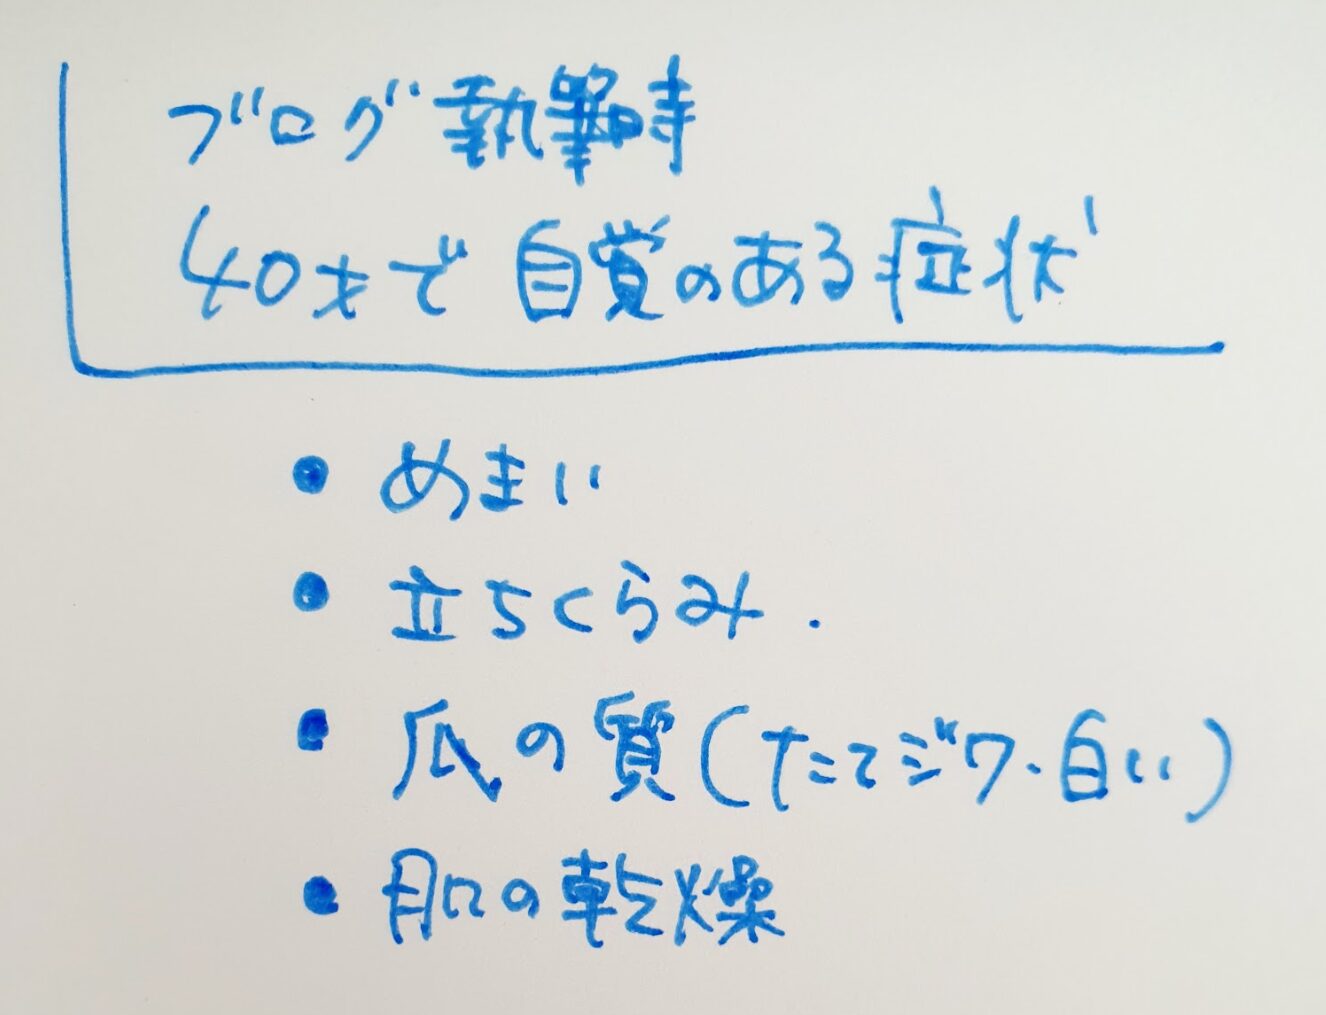 ブログ執筆時
40才で自覚のある症状
・めまい
・立ちくらみ.
・爪の質(たてジワ・白い)
・肌の乾燥